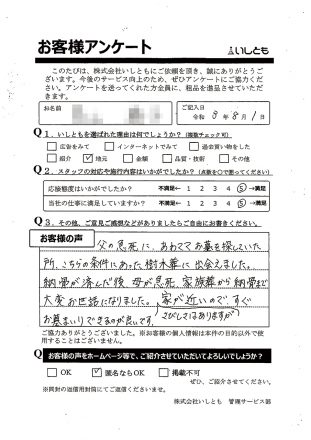 お客様アンケート
いしとも
このたびは、株式会社いしともにご依頼を頂き、誠にありがとうござ
います。今後のサービス向上のため、ぜひアンケートにご協力くださ
い。アンケートを送ってくれた方全員に、粗品を進呈させていただ
きます。
お名前
ご記入日
令和 8年 8月 1日
Q1.いしともを選ばれた理由は何でしょうか?(複数チェック可)
□広告をみて □インターネットでみて □過去買い物をした
□紹介 ☑地元 □金額 □品質・技術 □その他
Q2.スタッフの対応や施行内容はいかがでしたか?(点数を○で囲ってください)
応接態度はいかがでしたか? 不満足← 1 2 3 4 5 →満足
当社の仕事に満足していますか? 不満足← 1 2 3 4 5 →満足
Q3.その他、ご意見ご感想などがありましたらご自由にお書きください。
お客様の声
父の急死に、あわててお墓を探していた
所、こちらの条件にあった樹木葬に出会えました。
納骨が済んだ後、母が急死、家族葬から納骨まで
大変お世話になりました。家が近いので、すぐ
お墓まいりできるのが良いです。さびしくはありますが
ご協力ありがとうございました。※お客様の個人情報は本件の目的以外で使
用することはございません。
Q お客様の声をホームページ等で、ご紹介させていただいてよろしいでしょうか?
□OK ☑匿名ならOK □掲載不可
ぜひ、ご紹介させてください。
※同封の返信用封筒にてご返信くださいませ。
株式会社いしとも 管理サービス部